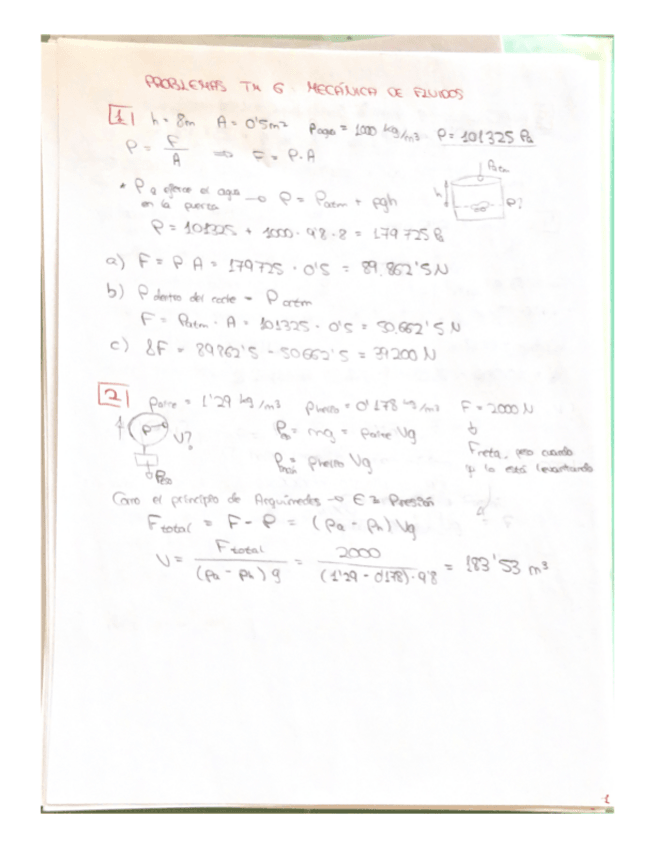 PROBLEMAS TM 6. MECÁNICA DE FLUIDOS
1 h = 8m A = 0'5m² ρagua = 1000 kg/m³ P = 101325 Pa
P = F/A ⇒ F = P·A
Patm
* P q ejerce el agua en la puerta → P = Patm + ρgh
h P?
P = 101325 + 1000 · 9'8 · 8 = 179725 Pa
a) F = P A = 179725 · 0'5 = 89.862'5 N
b) P dentro del coche = Patm
F = Patm · A = 101325 · 0'5 = 50.662'5 N
c) ΣF = 89862'5 - 50662'5 = 39200 N
2 ρaire = 1'29 kg/m³ ρhelio = 0'178 kg/m³ F = 2000 N
V? = mg = ρaire Vg
Fneta, peso cuando
= ρhelio Vg
lo está levantando
Peso
Como el principio de Arquímedes → E = Presión
Ftotal = F - P = (ρa - ρh) Vg
V = Ftotal / (ρa - ρh) g = 2000 / (1'29 - 0'178) · 9'8 = 183'53 m³